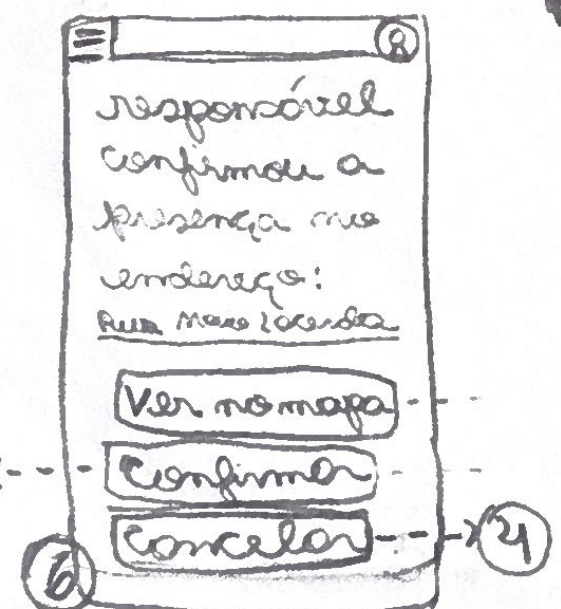 responsável
confirmou a
presença no
endereço:
Rua
Ver no mapa
Confirmar
Cancelar
6